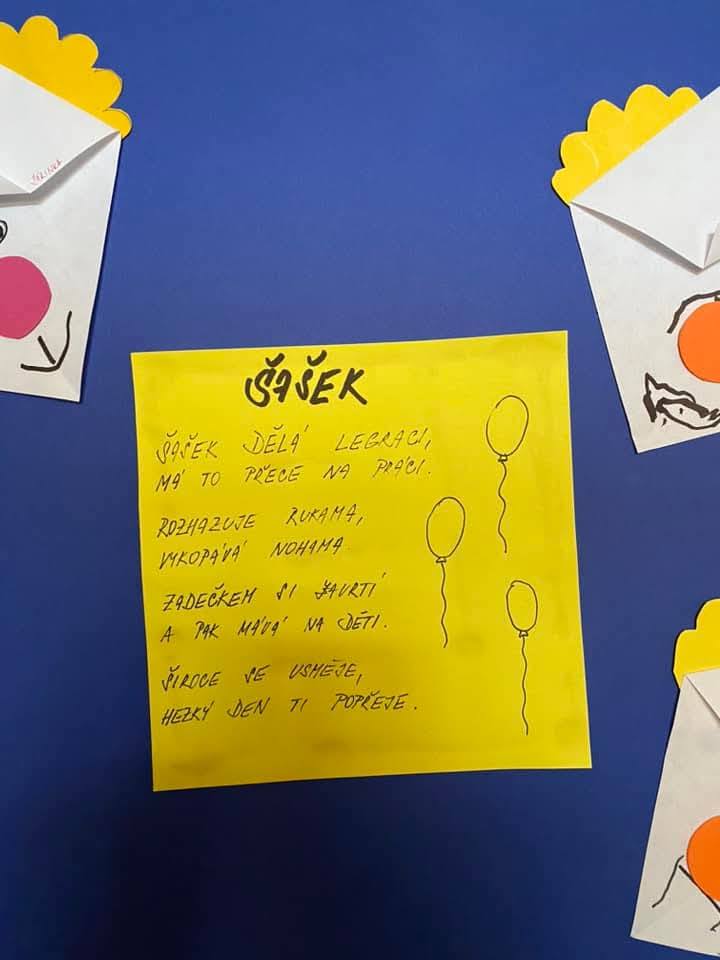 ŠAŠEK
ŠAŠEK DĚLÁ LEGRACI,
MÁ TO PŘECE NA PRÁCI.
ROZHAZUJE RUKAMA,
VYKOPÁVÁ NOHAMA
ZADEČKEM SI ZAVRTÍ
A PAK MÁVÁ NA DĚTI.
ŠIROCE SE USMĚJE,
HEZKÝ DEN TI POPŘEJE.